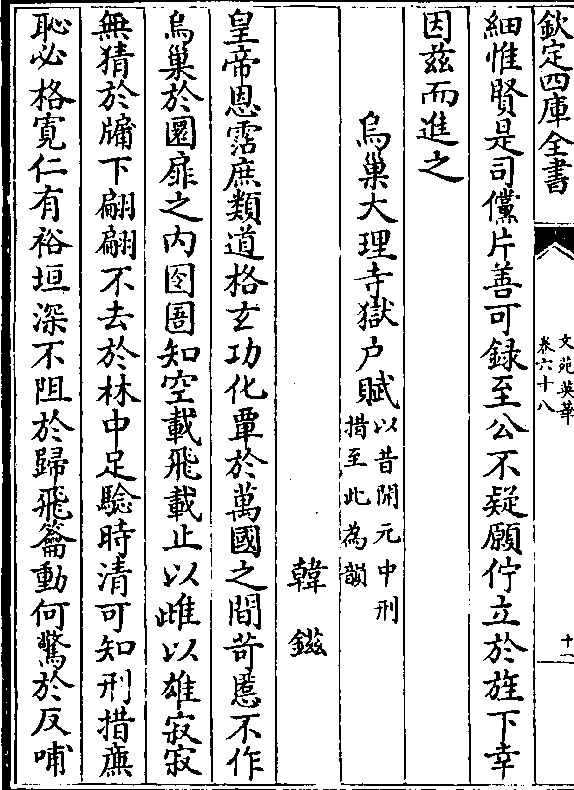 欽定四庫全書
文苑英華
卷六十八
十一
細惟賢是司儻片善可録至公不疑願佇立於旌下幸
因兹而進之
烏巢大理寺獄户賦以昔開元中刑措至此為韻
韓鎡
皇帝恩霑庶類道格玄功化覃於萬國之間苛慝不作
烏巢於圜扉之内囹圄知空載飛載止以雌以雄寂寂
無猜於牖下翩翩不去於林中足驗時清可知刑措廉
恥必格寛仁有裕垣深不阻於歸飛籥動何驚於反哺